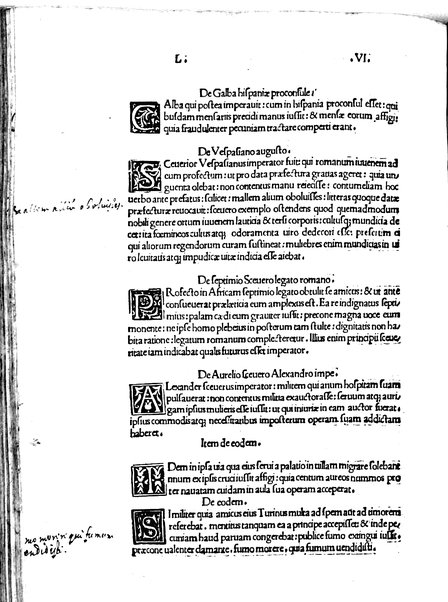 L. .VI.
De Galba hispaniæ proconsule:
GAlba qui postea imperauit: cum in hispania proconsul esset: qui
busdam mensariis precidi manus iussit: & mensæ eorum affigi
quia fraudulenter pecuniam tractare comperti erant.
De Vespasiano augusto.
SEuerior Vespasianus imperator fuit: qui romanum iuuenem ad
eum profectum: ut pro data præfectura gratias ageret: quia un
guenta olebat: non contentus manu reiecisse: contumeliam hoc
uerbo ante prefatus: scilicet: mallem alium oboluisses: litteras quoque datæ
præfecturæ reuocauit: seuero exemplo ostendens quod quemadmodum
nobili genere ortum iuuenem lautitia & tersi corporis: cultusq; mundicia de
cet: ita fœmineos cultus atq; odoramenta uiro dedecori esse: presertim ei
qui aliorum regendorum curam sustineat: muliebres enim munditias in ui
ro leuitatis atq; impudicitiæ indicia esse aiebat.
De septimio Seuero legato romano:
PRofecto in Africam septimio legato obuius se amicus: & ut ante
consueuerat præ lætitia eum amplexus est. Ea re indignatus septi
mius: palam cædi eum grauiter iussit: precone magna uoce eum
monente: ne ipse homo plebeius in posterum tam stulte: dignitatis non ha
bita ratione: legatum romanum complecteretur. Illius enim principii seue
ritate iam indicabat qualis futurus esset imperator.
De Aurelio seuero Alexandro impe:
ALexander seuerus imperator: militem qui anum hospitam suam
pulsauerat: non contentus militia exauctorasse: seruum atq; auri
gam ipsius mulieris esse iussit: ut qui iniuriæ in eam auctor fuerat,
ipsius commodis atq; necessitatibus imposterum operam suam addictam
haberet.
Item de eodem.
IDem in ipsa uia qua eius serui a palatio in uillam migrare solebant
unum ex ipsis cruci iussit affigi: quia centum aureos nummos pro
ter nauatam cuidam in aula sua operam acceperat.
De eodem.
SImiliter quia amicus eius Turinus multa ad spem atq; ad timorem
referebat. mentitus tanquam ea a principe accepisset: & inde pe
cuniam haud paruam congerebat: publice fumo extingui iussit.
præcone ualenter clamante. fumo morere, quia fumum uendidisti.